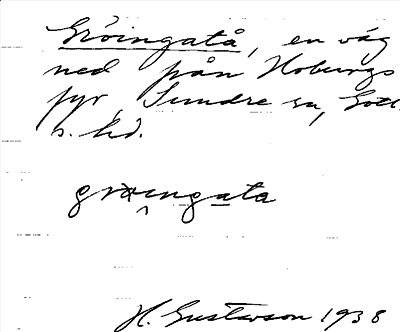 Gröingatå, en väg
ned från Hoburgs
fyr, Sundre sn, Gotl.
s. hd.
gröingata
H. Gustavson 1938